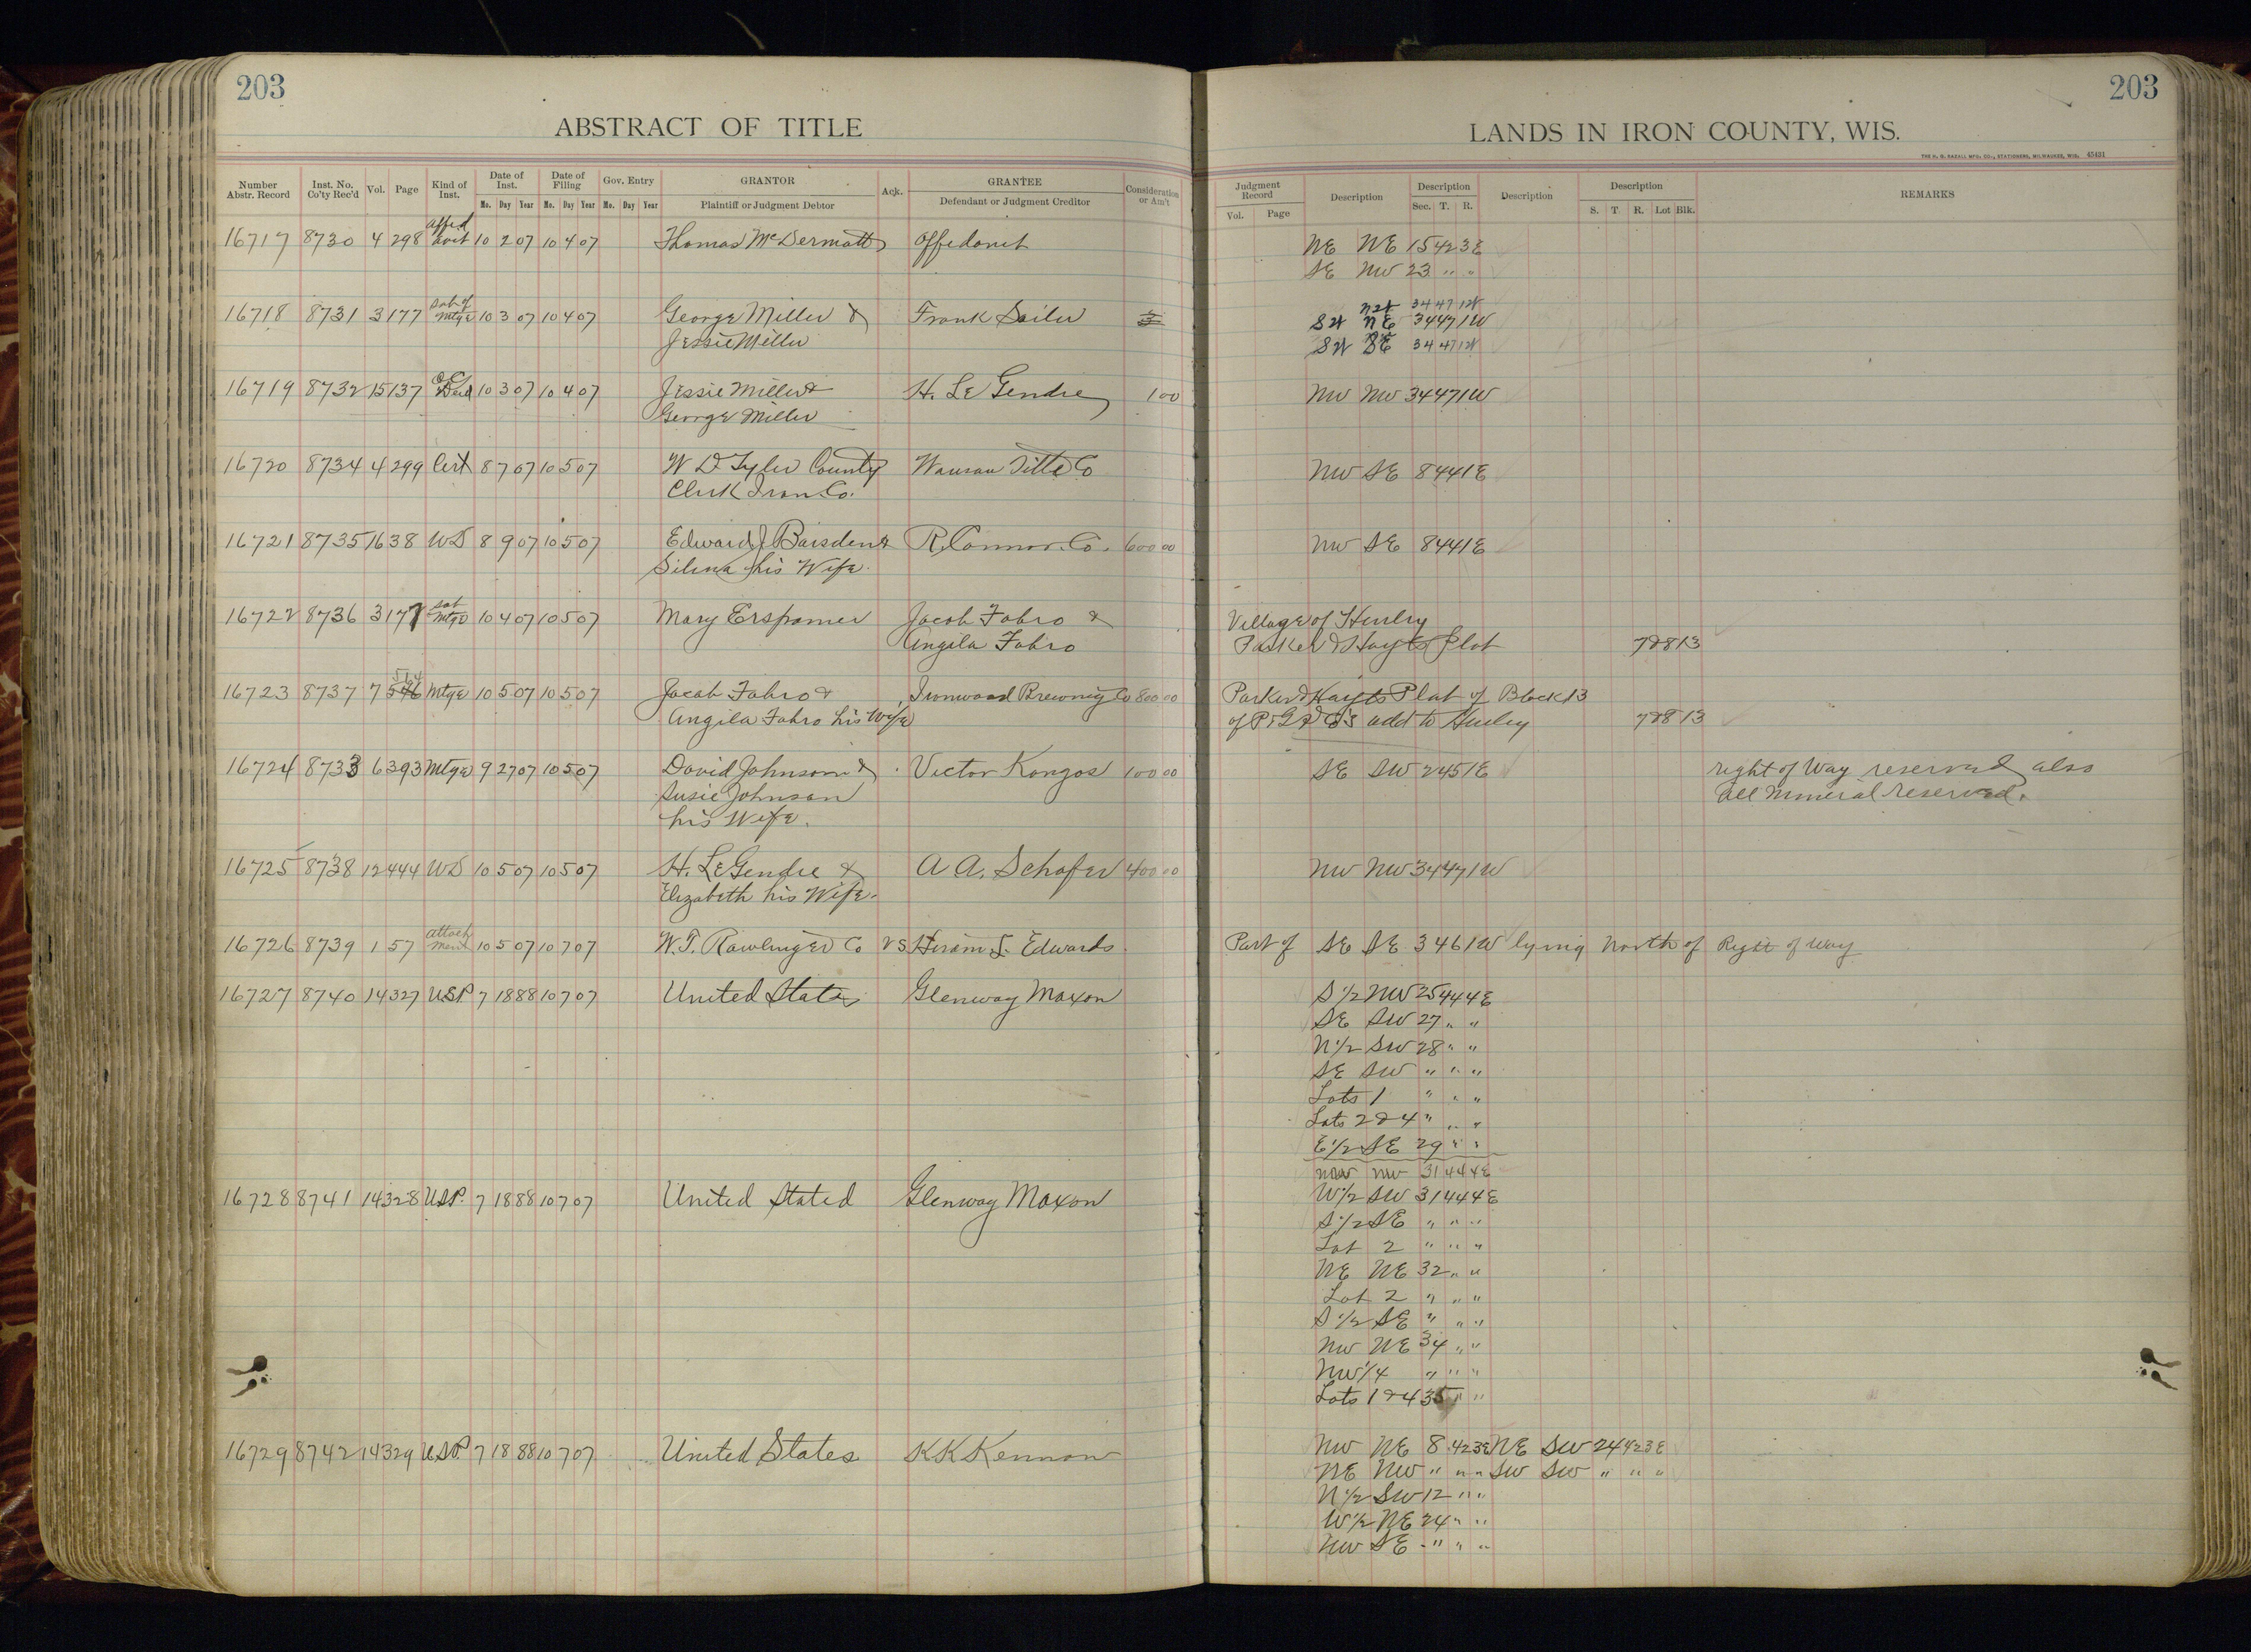 203
ABSTRACT OF TITLE
Number Abstr. Record Inst. No. Co'ty Rec'd Vol. Page Kind of Inst. Date of Inst. Date of Filing Gov. Entry GRANTOR Ack. GRANTEE Consideration or Am't
Mo. Day Year Mo. Day Year Mo. Day Year Plaintiff or Judgment Debtor Defendant or Judgment Creditor
16717 8730 4 298 Affidavit 10 2 07 10 4 07 Thomas McDermott Affidavit
16718 8731 3 177 Sat of Mtge 10 3 07 10 4 07 George Miller & Frank Sailer
Jessie Miller
16719 8732 15 137 QC Deed 10 3 07 10 4 07 Jessie Miller & H. Le Gendre 1 00
George Miller
16720 8734 4 299 Cert 8 7 07 10 5 07 W D. Tyler County Wausau Title Co
Clerk Iron Co.
16721 8735 16 38 WD 8 9 07 10 5 07 Edward J Baisden & R. Connor Co. 600 00
Silina his Wife
16722 8736 3 177 Sat Mtge 10 4 07 10 5 07 Mary Erspamer Jacob Fabro &
Angila Fabro
16723 8737 7 546 564 Mtge 10 5 07 10 5 07 Jacob Fabro & Ironwood Brewing Co 800 00
Angila Fabro his Wife
16724 8733 6 393 Mtge 9 27 07 10 5 07 David Johnson & Victor Kongos 100 00
Susie Johnson
his Wife.
16725 8738 12 444 WD 10 5 07 10 5 07 H. LeGendre & A A. Schafer 400 00
Elizabeth his Wife.
16726 8739 1 57 Attachment 10 5 07 10 7 07 W.T. Rawlinger Co vs. Hiram S. Edwards
16727 8740 14 327 USP 7 18 88 10 7 07 United States Glenway Maxon
16728 8741 14 328 USP. 7 18 88 10 7 07 United Stated Glenway Maxon
16729 8742 14 329 USP. 7 18 88 10 7 07 United States K K Kennan
203
LANDS IN IRON COUNTY, WIS.
45421
Judgment Record Description Description Description Description REMARKS
Vol. Page Sec. T. R. S. T. R. Lot Blk.
NE NE 15 42 3E
SE NW 23 " "
34 47 1W
NE 34 47 1W
SE 34 47 1W
NW NW 34 47 1W
NW SE 8 44 1E
NW SE 8 44 1E
Village of Hurley
Parker & Hayts Plat 7&8 13
Parker & Hayts Plat of Block 13
add to Hurley 7&8 13
SE SW 2 45 1E right of Way reserved also
all Mineral reserved.
NW NW 34 47 1W
Part of SE SE 3 46 1W lying North of Right of Way
S 1/2 NW 25 44 4E
SE SW 27 " "
N 1/2 SW 28 " "
SE SW " " "
Lots 1 " " "
Lots 2 & 4 " " "
E 1/2 SE 29 " "
NW NW 31 44 4E
W 1/2 SW 31 44 4E
S 1/2 SE " " "
Lot 2 " " "
NE NE 32 " "
Lot 2 " " "
S 1/2 SE " " "
NW NE 34 " "
NW 1/4 " " "
Lots 1 & 4 35 " "
NW NE 8 42 3E NE SW 24 42 3E
NE NW " " " SW SW " " "
N 1/2 SW 12 " "
W 1/2 NE 24 " "
NW SE " " "